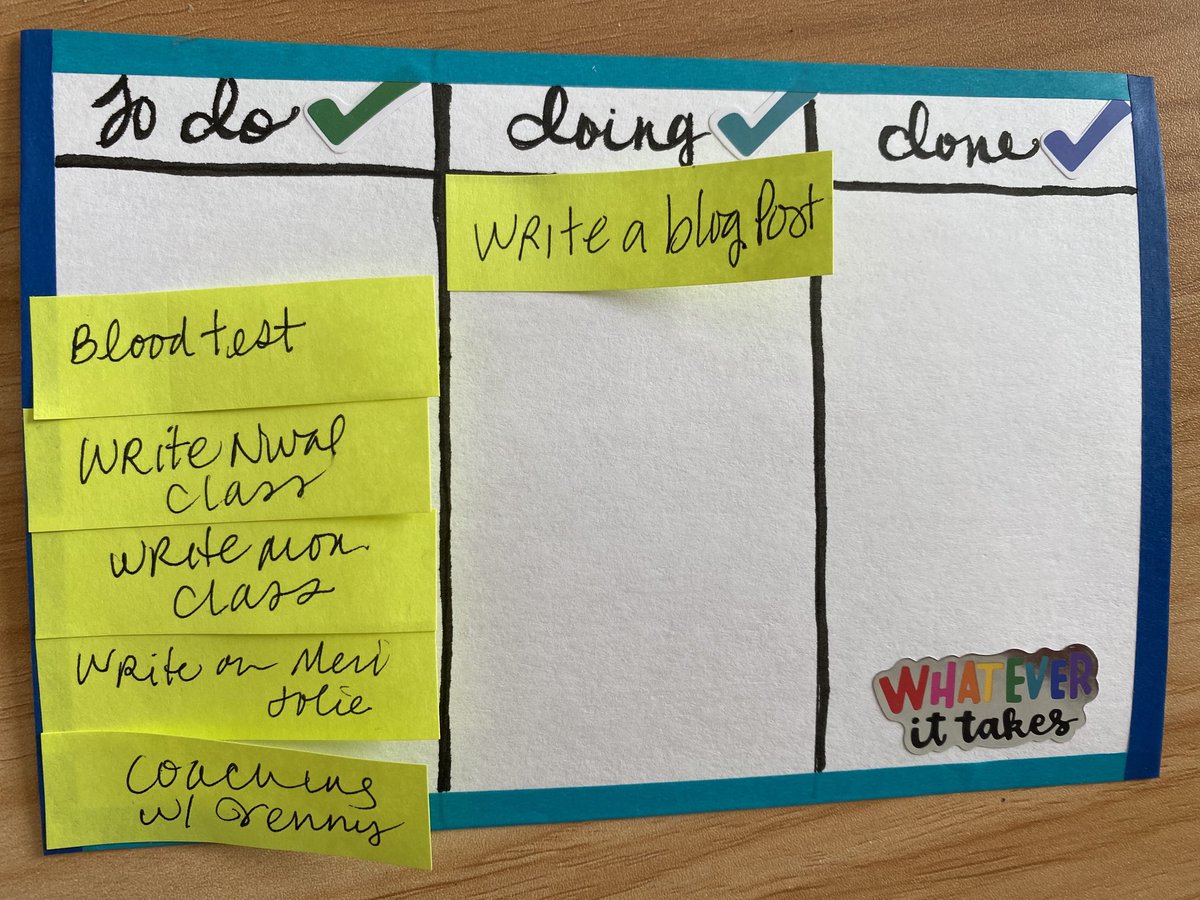 To do
doing
done
Blood test
Write Nwal
class
Write mon
class
Write on Meri
Jolie
Coaching
w/ Grenny
Write a blog Post
WHATEVER
it takes